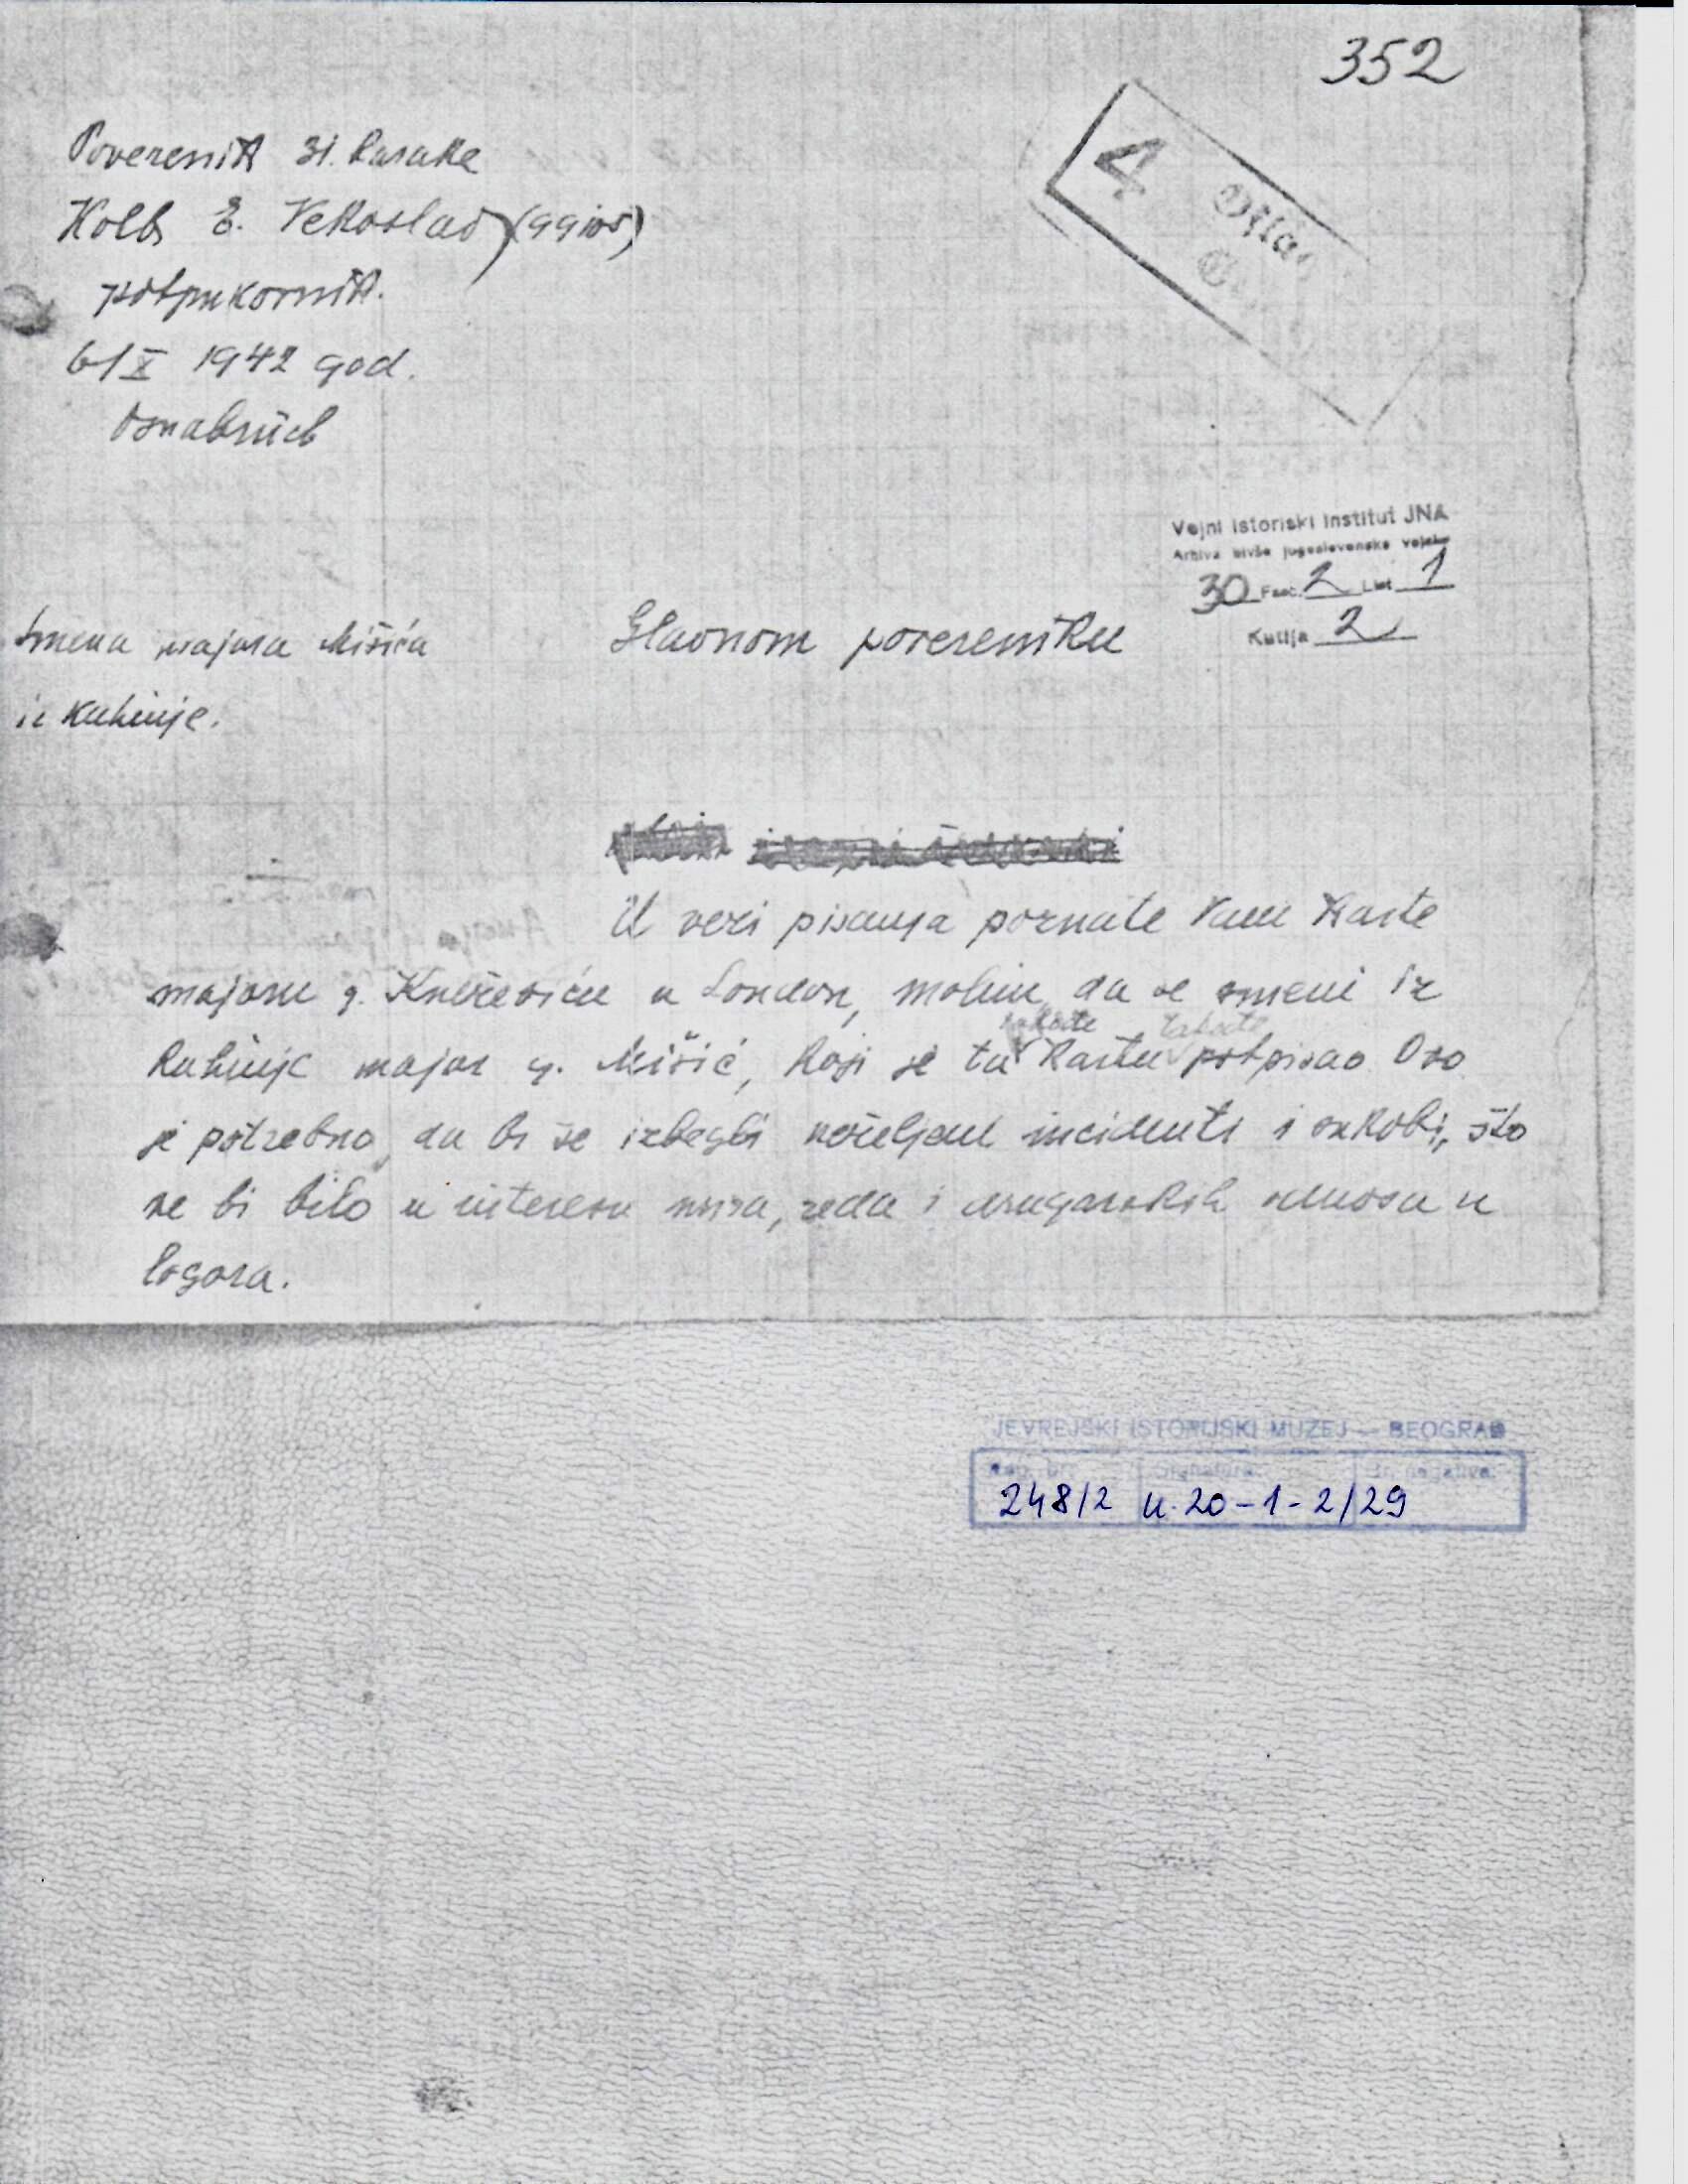 352
Poverenik 31. barake
Kolb E. Vekoslav
potpukovnik.
6/X 1942 god.
Osnabrück
4
Vojni Istoriski Institut JNA
Arhiva bivše jugoslovenske vojske
30 Fasc. 2 List 1
Kutija 2
Smena majora Mišića
iz kuhinje.
Glavnom povereniku
U vezi pisanja poznate Vam karte
majoru g. Kneževiću u London, molim da se smeni iz
kuhinje major g. Mišić, koji je tu kartu potpisao. Ovo
takođe takođe
je potrebno, da bi se izbegli neželjeni incidenti i sukobi, što
ne bi bilo u interesu mira, reda i drugarskih odnosa u
logora.
JEVREJSKI ISTORIJSKI MUZEJ — BEOGRAD
Reg. br. Signatura: Br. negativa:
248/2 K. 20-1-2/29